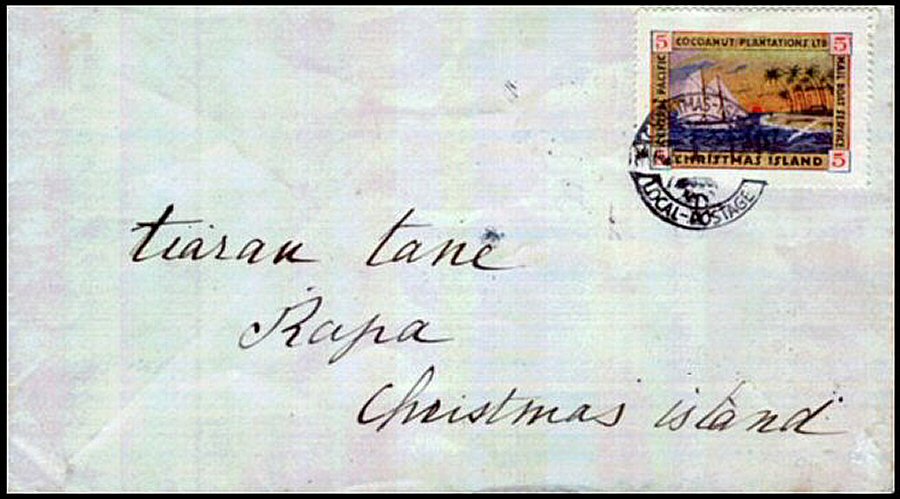 5 COCOANUT PLANTATIONS LTD 5
CENTRAL PACIFIC
MAIL BOAT SERVICE
CHRISTMAS ISLAND 5
LOCAL-POSTAGE
tiarau tane
Rapa
Christmas island